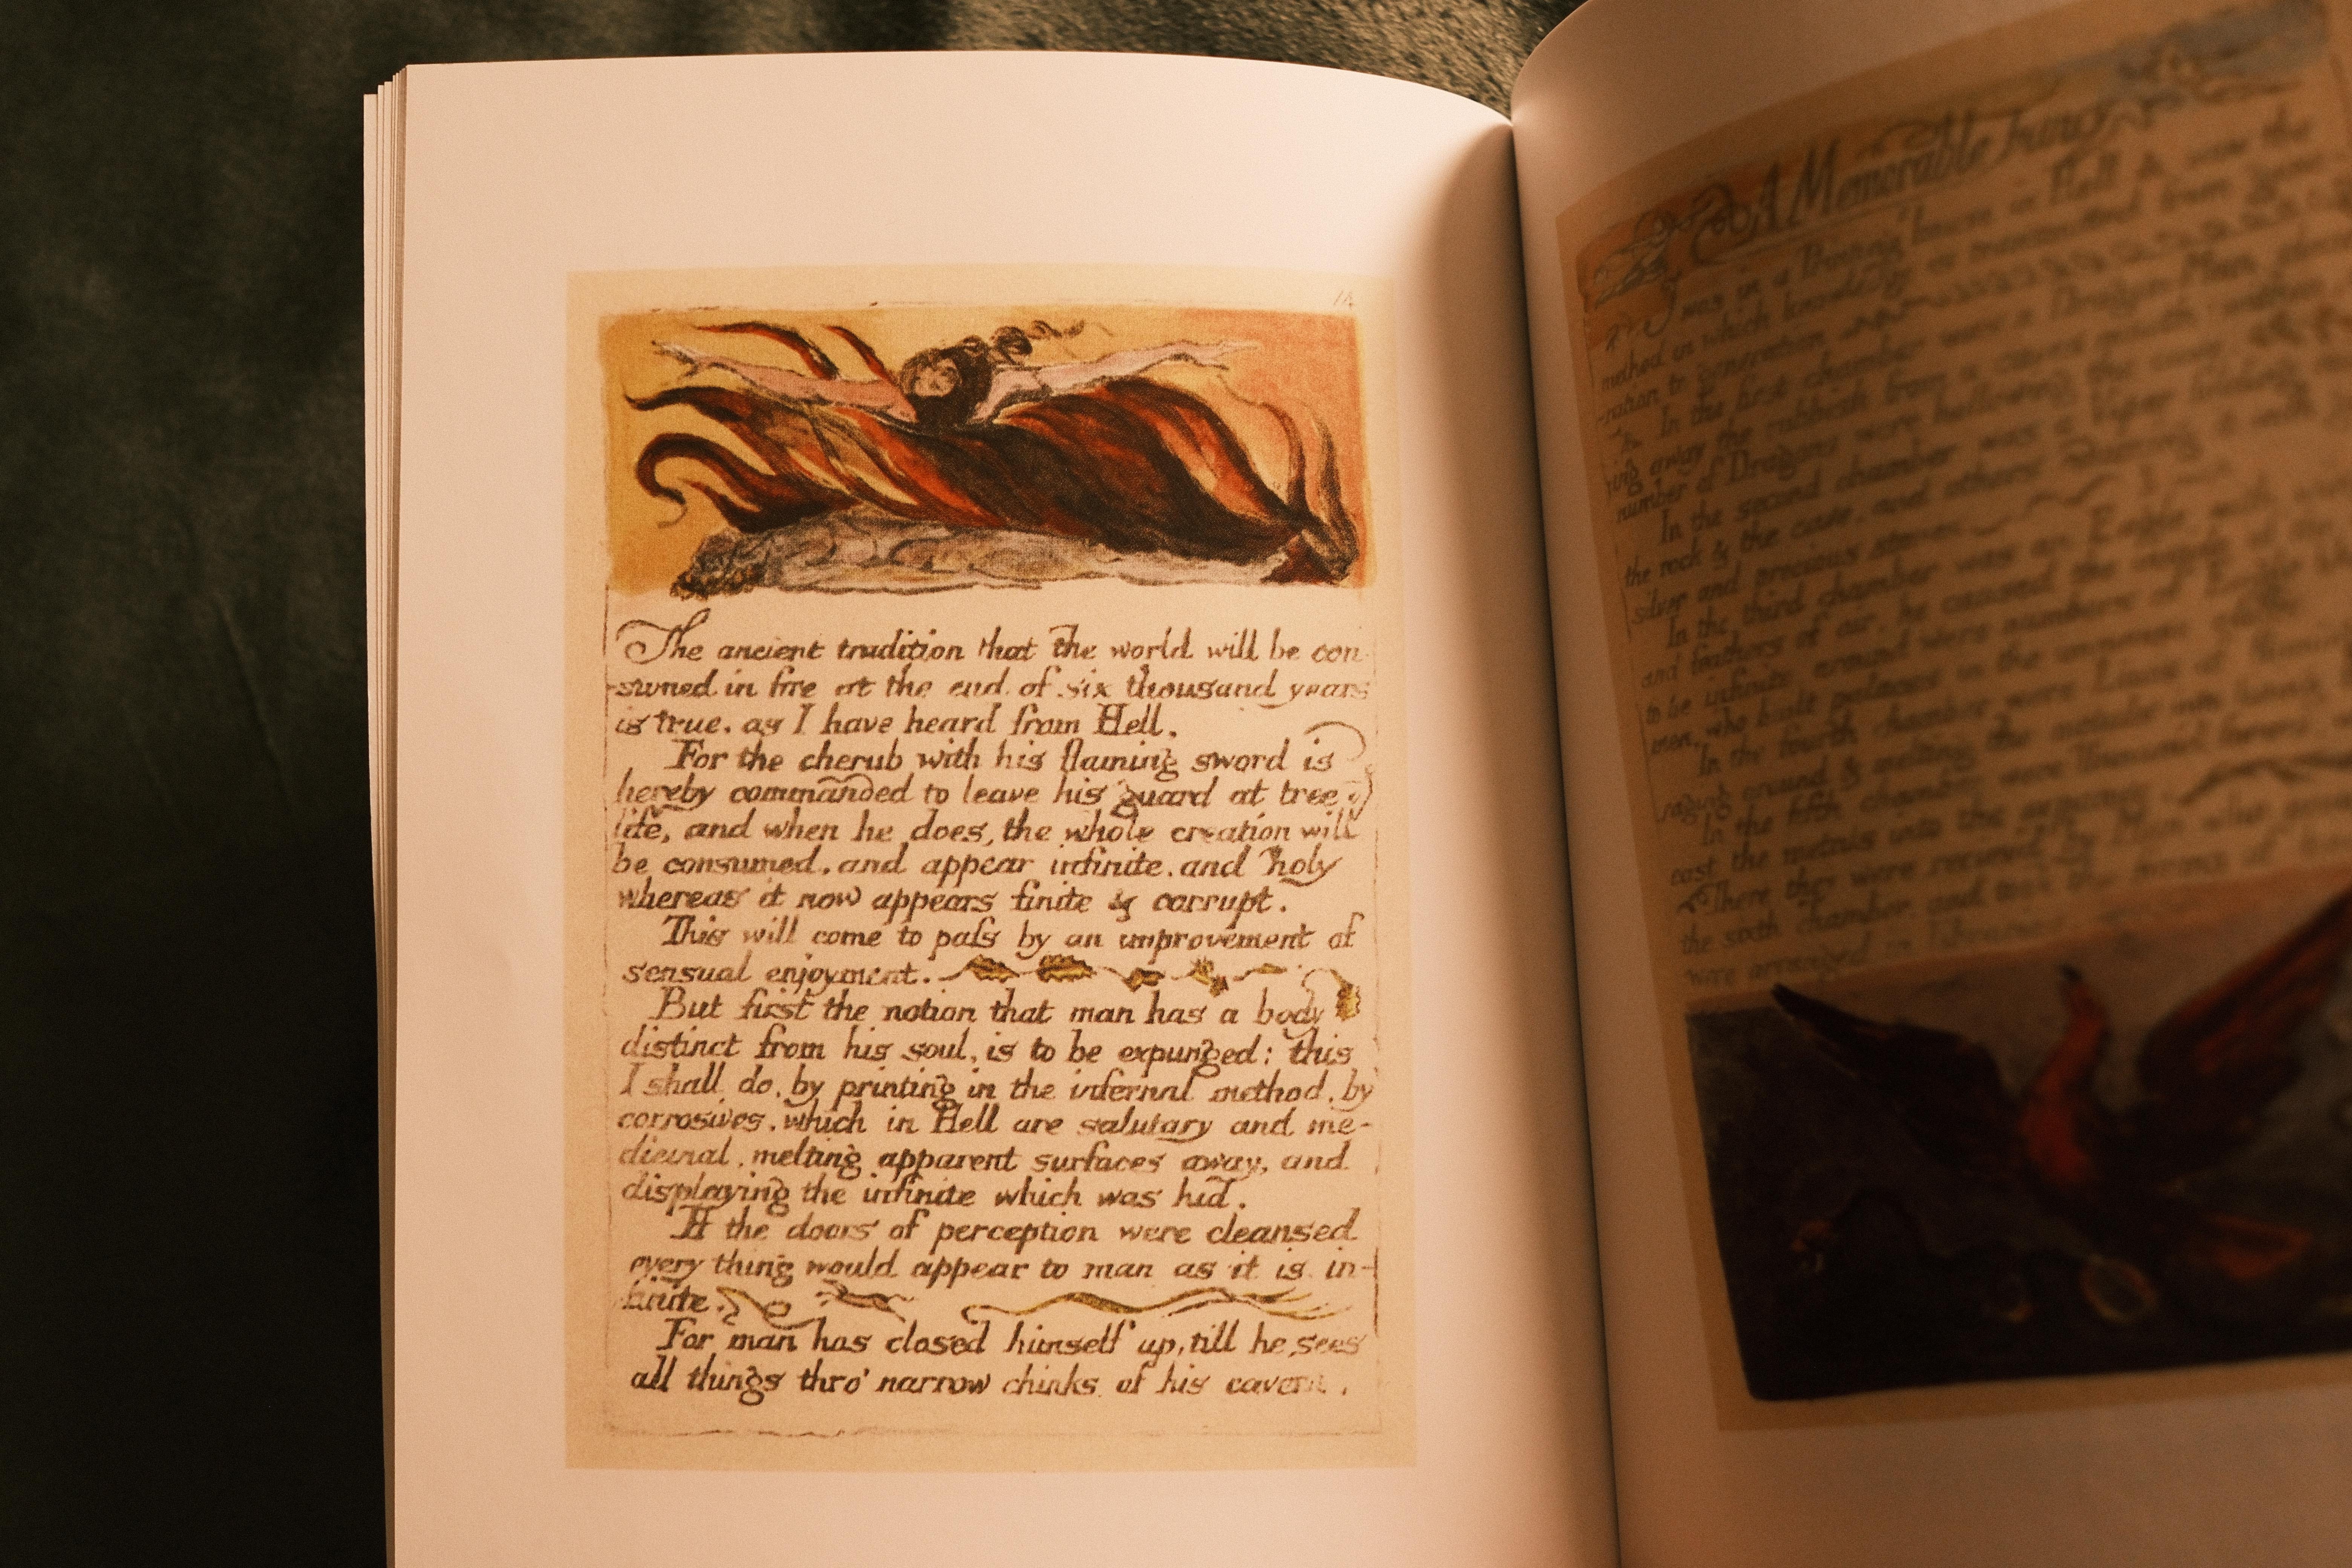 14
The ancient tradition that the world will be con-
-sumed in fire at the end of six thousand years
is true. as I have heard from Hell.
For the cherub with his flaming sword is
hereby commanded to leave his guard at tree of
life, and when he does, the whole creation will
be consumed, and appear infinite. and holy
whereas it now appears finite & corrupt.
This will come to pass by an improvement of
sensual enjoyment.
But first the notion that man has a body
distinct from his soul, is to be expunged: this
I shall do, by printing in the infernal method, by
corrosives, which in Hell are salutary and me-
dicinal, melting apparent surfaces away, and
displaying the infinite which was hid.
If the doors of perception were cleansed
every thing would appear to man as it is, in-
finite.
For man has closed himself up, till he sees
all things thro' narrow chinks of his cavern.
A Memorable Fancy
I was in a Printing house in Hell & saw the
method in which knowledge is transmitted from gene-
-ration to generation
In the first chamber was a Dragon-Man, clear-
-ing away the rubbish from a caves mouth; within, a
number of Dragons were hollowing the cave,
In the second chamber was a Viper folding round
the rock & the cave, and others adorning it with gold
silver and precious stones.
In the third chamber was an Eagle with wings
and feathers of air, he caused the inside of the
to be infinite, around were numbers of Eagle like
men, who built palaces in the immense cliffs.
In the fourth chamber were Lions of flaming
raging around & melting the metals into living
In the fifth chamber were Unnamd forms,
cast the metals into the expanse.
There they were reciev'd by Men who
the sixth chamber, and took the forms of
were arranged in